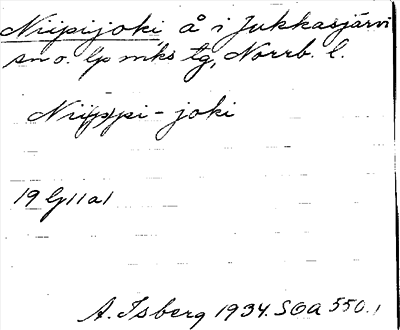 Niipijoki å i Jukkasjärvi
sn o. lp mks tg, Norrb. l.
Nii(p)pi-joki
19 lj 11 a 1
A. Isberg 1934. SOA 550.